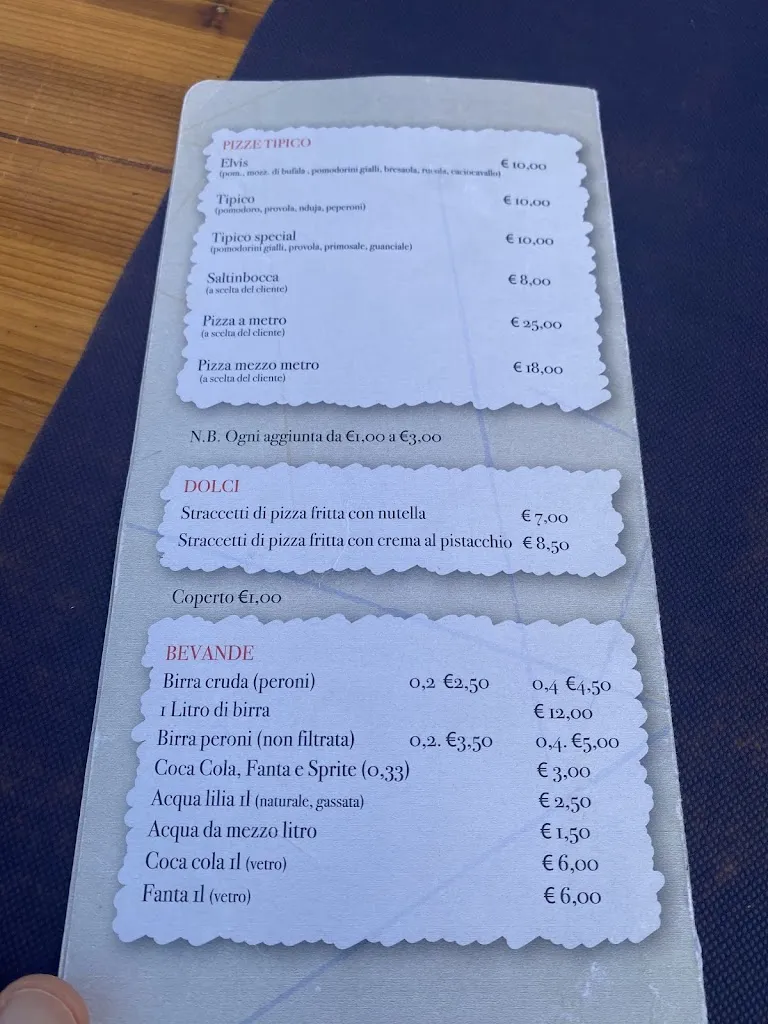 PIZZE TIPICO
Elvis € 10,00
(pom., mozz. di bufala , pomodorini gialli, bresaola, rucola, caciocavallo)
Tipico € 10,00
(pomodoro, provola, nduja, peperoni)
Tipico special € 10,00
(pomodorini gialli, provola, primosale, guanciale)
Saltinbocca € 8,00
(a scelta del cliente)
Pizza a metro € 25,00
(a scelta del cliente)
Pizza mezzo metro € 18,00
(a scelta del cliente)
N.B. Ogni aggiunta da €1,00 a €3,00
DOLCI
Straccetti di pizza fritta con nutella € 7,00
Straccetti di pizza fritta con crema al pistacchio € 8,50
Coperto €1,00
BEVANDE
Birra cruda (peroni) 0,2 €2,50 0,4 €4,50
1 Litro di birra € 12,00
Birra peroni (non filtrata) 0,2. €3,50 0,4. €5,00
Coca Cola, Fanta e Sprite (0,33) € 3,00
Acqua lilia 1l (naturale, gassata) € 2,50
Acqua da mezzo litro € 1,50
Coca cola 1l (vetro) € 6,00
Fanta 1l (vetro) € 6,00